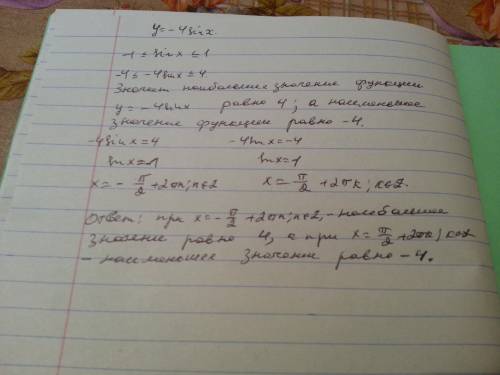 y = -4sin x.
-1 ≤ sin x ≤ 1
-4 ≤ -4sin x ≤ 4
Значит наибольшее значение функции
y = -4sin x равно 4; а наименьшее
значение функции равно -4.
-4sin x = 4 -4sin x = -4
sin x = -1 sin x = 1
x = -π/2 + 2πk; k∈Z x = π/2 + 2πk; k∈Z.
Ответ: при x = -π/2 + 2πk; k∈Z, - наибольшее
значение равно 4, а при x = π/2 + 2πk; k∈Z
- наименьшее значение равно -4.